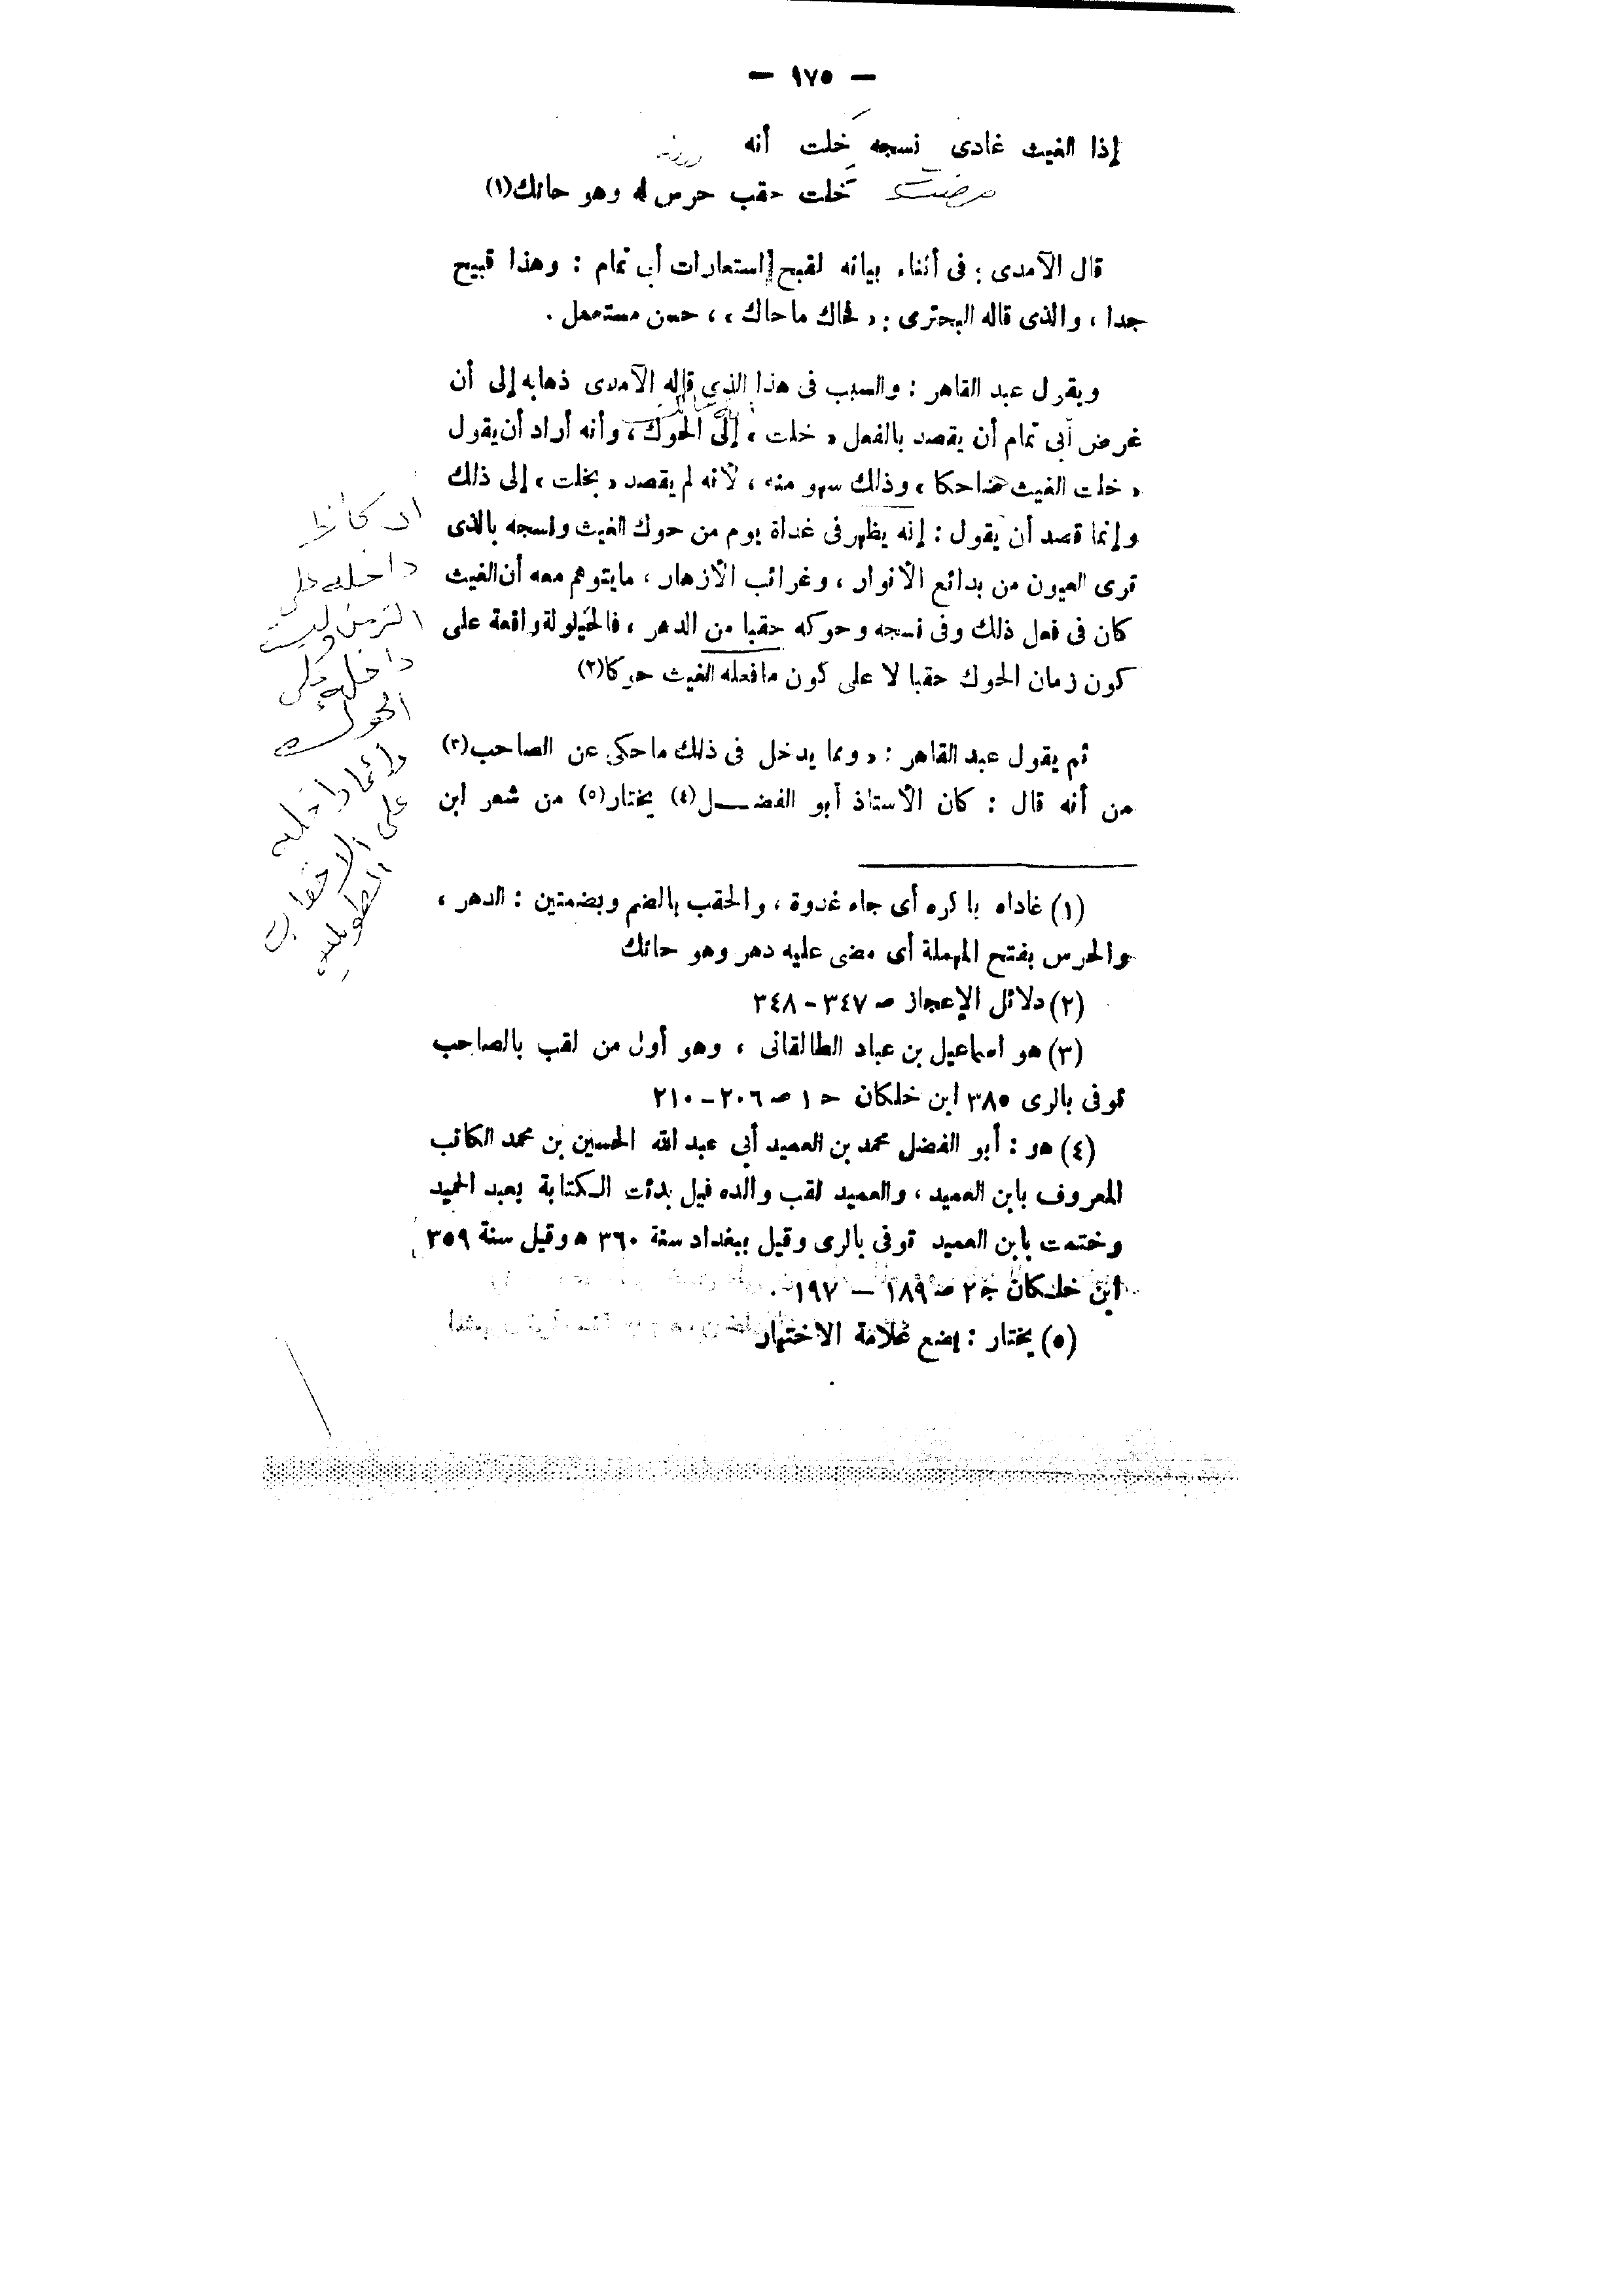 — ١٧٥ —
إذا الغيث غادى نسجه خلت أنه
مضت
خلت حقب حرس له وهو حائك(١)
قال الآمدى : فى أثناء بيانه لقبح استعارات أبى تمام : وهذا قبيح
جدا ، والذى قاله البحترى : « فحاك ماحاك » ، حسن مستعمل .
ويقول عبد القاهر : والسبب فى هذا الذى قاله الآمدى ذهابه إلى أن
غرض أبى تمام أن يقصد بالفعل « خلت » إلى الحوك ، وأنه أراد أن يقول
« خلت الغيث ضاحكا » وذلك سهو منه ، لأنه لم يقصد « بخلت » إلى ذلك
وإنما قصد أن يقول : إنه يظهر فى غداة يوم من حوك الغيث ونسجه بالذى
ترى العيون من بدائع الأنوار ، وغرائب الأزهار ، مايتوهم معه أن الغيث
كان فى فعل ذلك وفى نسجه وحوكه حقبا من الدهر ، فالخيلولة واقعة على
كون زمان الحوك حقبا لا على كون مافعله الغيث حوكا(٢)
ثم يقول عبد القاهر : « ومما يدخل فى ذلك ماحكى عن الصاحب(٣)
من أنه قال : كان الأستاذ أبو الفضل(٤) يختار(٥) من شعر ابن
داخلة على
الزمن وليست
داخلة على
الحوك
وإنما داخلة
على الأحقاب
الطويلة
(١) غاداه باكره أى جاء غدوة ، والحقب بالضم وبضمتين : الدهر ،
والحرس بفتح المهملة أى مضى عليه دهر وهو حائك
(٢) دلائل الإعجاز صـ ٣٤٧ - ٣٤٨
(٣) هو اسماعيل بن عباد الطالقانى ، وهو أول من لقب بالصاحب
توفى بالرى ٣٨٥ ابن خلكان حـ ١ صـ ٢٠٦ - ٢١٠
(٤) هو : أبو الفضل محمد بن العميد أبي عبد الله الحسين بن محمد الكاتب
المعروف بابن العميد ، والعميد لقب والده قيل بدئت الكتابة بعبد الحميد
وختمت بابن العميد توفى بالرى وقيل ببغداد سنة ٣٦٠ ه وقيل سنة ٣٥٩
ابن خلكان جـ ٢ صـ ١٨٩ — ١٩٧ .
(٥) يختار : يضع علامة الاختيار